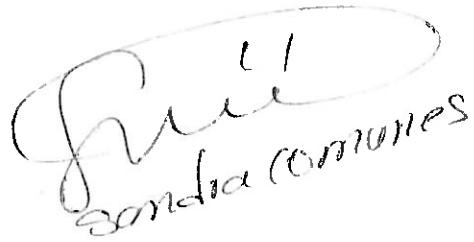 Sandra Comunes